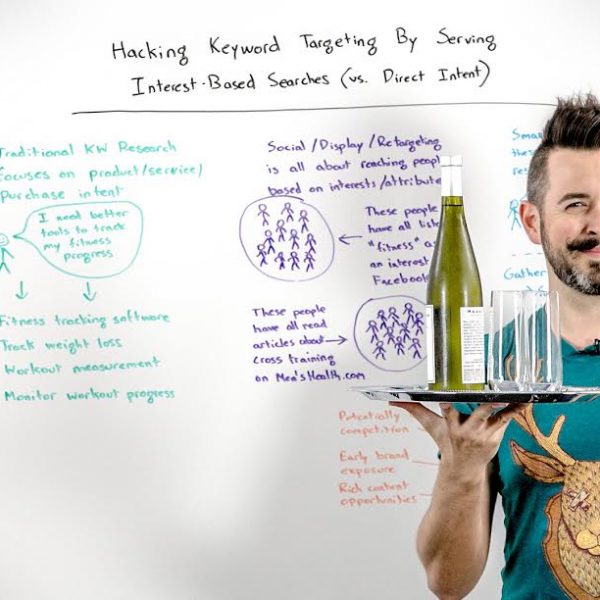 Hacking Keyword Targeting By Serving
Interest-Based Searches (vs. Direct Intent)
Traditional KW Research
focuses on product/service/
purchase intent
I need better
tools to track
my fitness
progress
Fitness tracking software
Track weight loss
Workout measurement
Monitor workout progress
Social/Display/Retargeting
is all about reaching people
based on interests/attribute
These people
have all liste
"fitness" as
an interest
Facebook
These people
have all read
articles about
cross training
on Men'sHealth.com
Potentially
competition
Early brand
exposure
Rich content
opportunities
Smar
thes
res
Gather